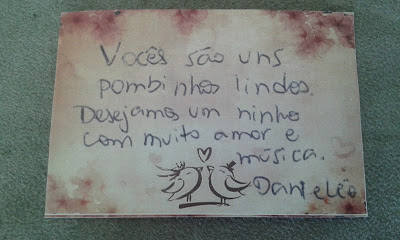 Vocês são uns
pombinhos lindos.
Desejamos um ninho
com muito amor e
música.